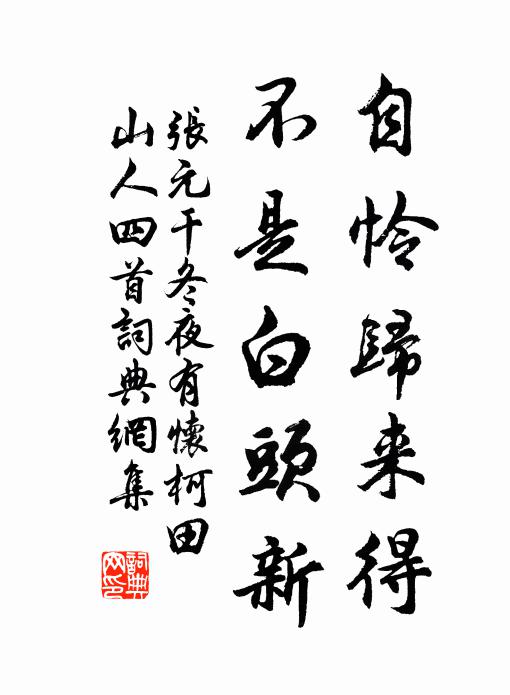 自怜歸来得
不是白頭新
張元干冬夜有懷柯田
山人四首詞典網集
詞典
网印